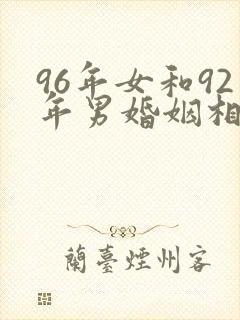 96年女和92
年男婚姻相
蘭臺煙州客